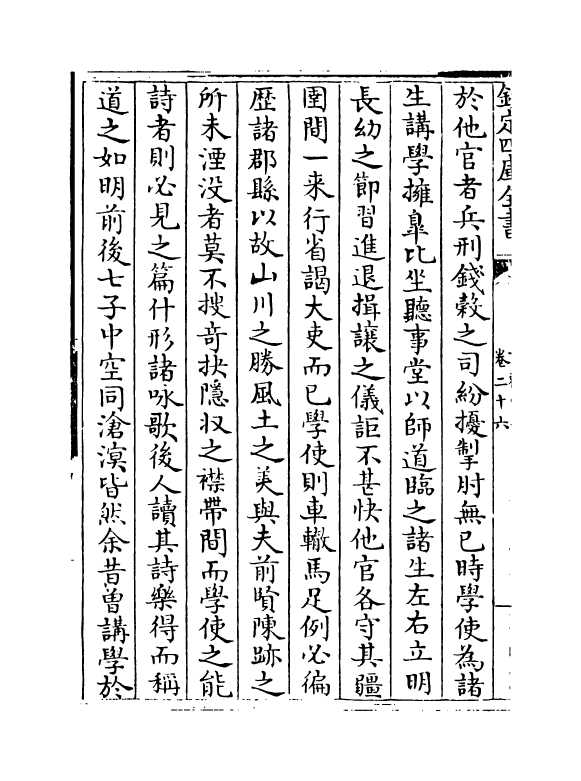 欽定四庫全書
卷二十六
於他官者兵刑錢榖之司紛擾掣肘無已時學使為諸
生講學擁臯比坐聽事堂以師道臨之諸生左右立明
長幼之節習進退揖讓之儀詎不甚快他官各守其疆
圉間一来行省謁大吏而已學使則車轍馬足例必徧
歴諸郡縣以故山川之勝風土之美與夫前賢陳跡之
所未湮没者莫不搜竒抉隱収之襟帶間而學使之能
詩者則必見之篇什形諸咏歌後人讀其詩樂得而稱
道之如明前後七子中空同滄溟皆然余昔曽講學於